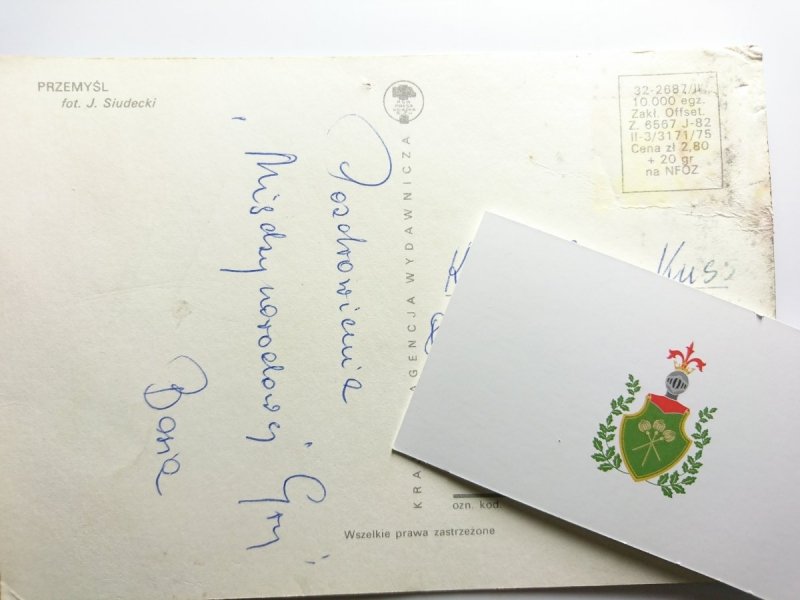 PRZEMYŚL
fot. J. Siudecki
32-2687/II
10.000 egz.
Zakł. Offset.
Z. 6567 J-82
II-3/3171/75
Cena zł 2,80
+ 20 gr
na NFOZ
KRA
AGENCJA WYDAWNICZA
Pozdrowienia
"Międzynarodowej Gry"
Basia
Kuss
ozn. kod.
Wszelkie prawa zastrzeżone